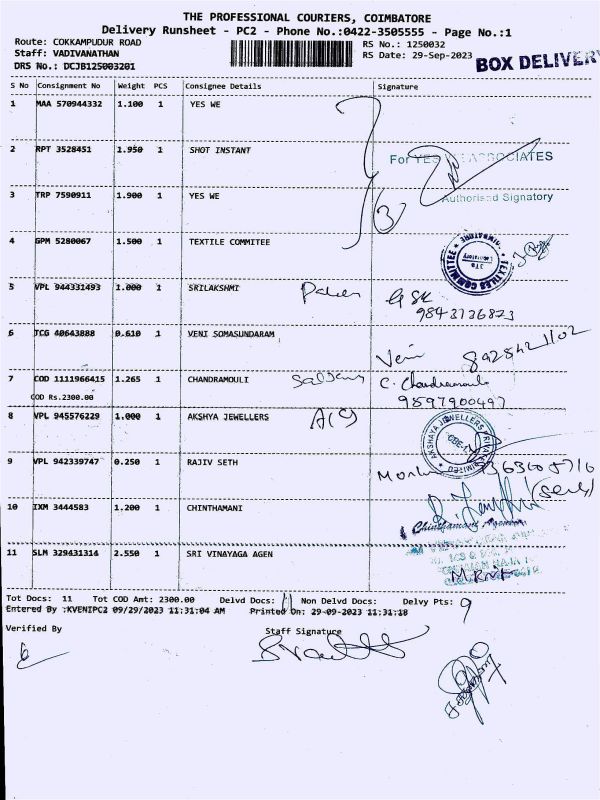 THE PROFESSIONAL COURIERS, COIMBATORE
Delivery Runsheet - PC2 - Phone No.:0422-3505555 - Page No.:1
Route: COKKAMPUDUR ROAD RS No.: 1250032
Staff: VADIVANATHAN RS Date: 29-Sep-2023
BOX DELIVERY
DRS No.: DCJB125003201
S No Consignment No Weight PCS Consignee Details Signature
1 MAA 570944332 1.100 1 YES WE
2 RPT 3528451 1.950 1 SHOT INSTANT
For YES WE ASSOCIATES
3 TRP 7590911 1.900 1 YES WE
Authorised Signatory
3
4 GPM 5280067 1.500 1 TEXTILE COMMITEE
TEXTILES COMMITTEE
5 VPL 944331493 1.000 1 SRILAKSHMI
GSK
9843736823
6 TCG 40643888 0.610 1 VENI SOMASUNDARAM
Veni 8928421102
7 COD 1111966415 1.265 1 CHANDRAMOULI
C. Chandramouli
COD Rs.2300.00
9597900497
8 VPL 945576229 1.000 1 AKSHYA JEWELLERS
A/C
AKSHAYA JEWELLERS PRIVATE LIMITED
CBE-1
9 VPL 942339747 0.250 1 RAJIV SETH
10 IXM 3444583 1.200 1 CHINTHAMANI
Chinthamani
11 SLM 329431314 2.550 1 SRI VINAYAGA AGEN
Tot Docs: 11 Tot COD Amt: 2300.00 Delvd Docs: 11 Non Delvd Docs: Delvy Pts: 9
Entered By :KVENIPC2 09/29/2023 11:31:04 AM Printed On: 29-09-2023 11:31:18
Verified By Staff Signature